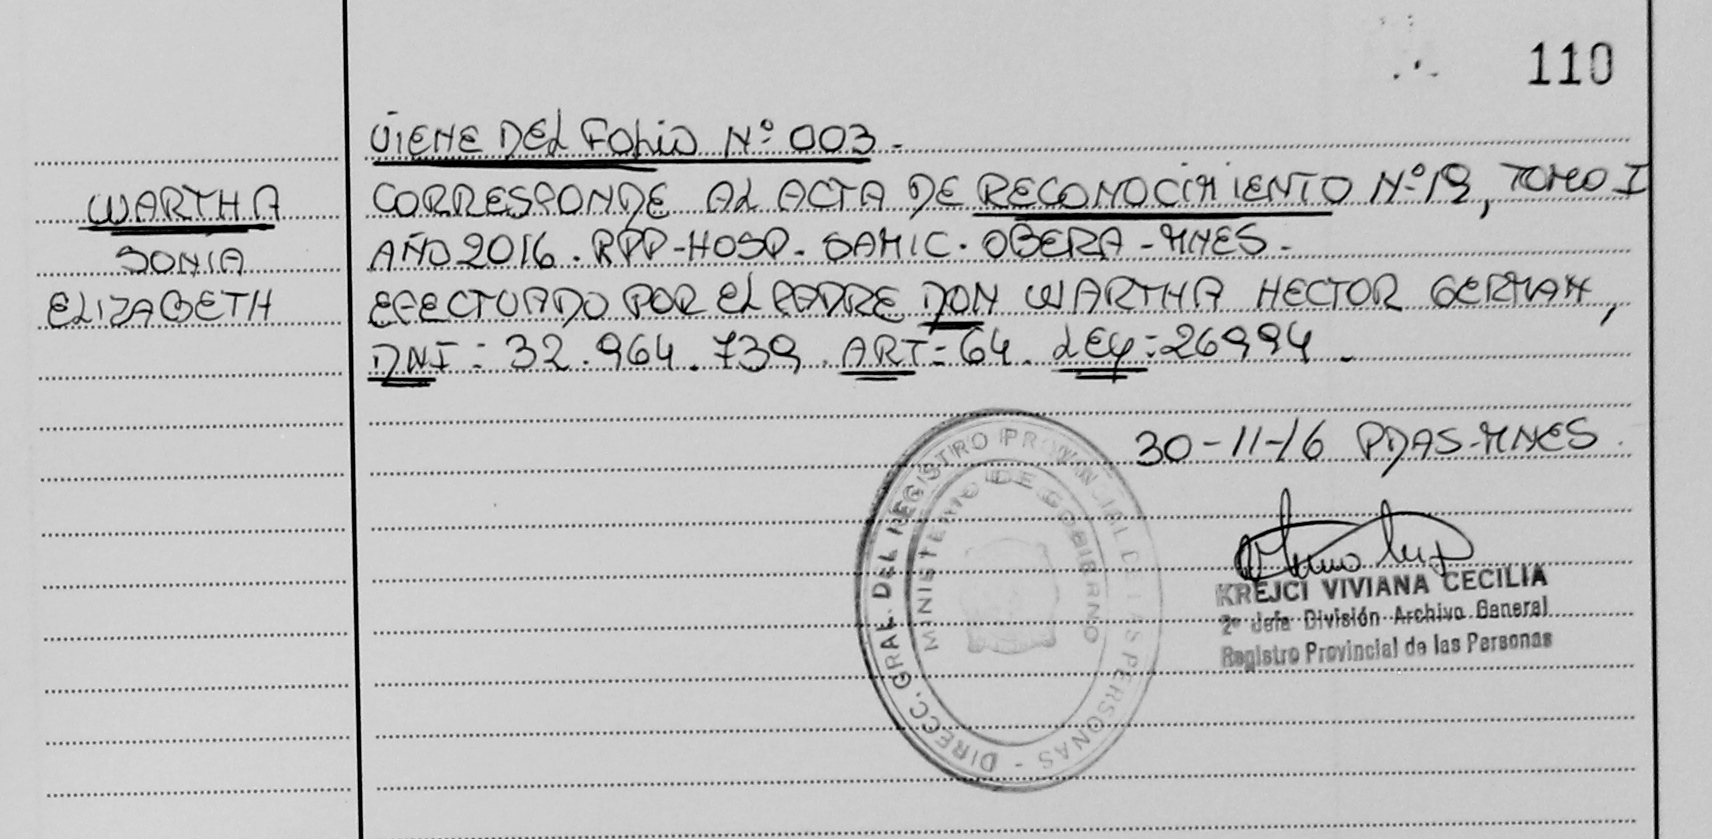 110
VIENE DEL FOLIO N° 003-
WARTHA
SONIA
ELIZABETH
CORRESPONDE AL ACTA DE RECONOCIMIENTO N°19, TOMO I
AÑO 2016. RPP-HOSP. SAMIC. OBERA-MNES.-
EFECTUADO POR EL PADRE DON WARTHA HECTOR GERMAN,
DNI: 32.964.739. ART=64. LEY:26994.
30-11-16 PDAS-MNES.
DIRECC. GRAL. DEL REGISTRO PROVINCIAL DE LAS PERSONAS -
MINISTERIO DE GOBIERNO
KREJCI VIVIANA CECILIA
2° Jefa División Archivo General
Registro Provincial de las Personas